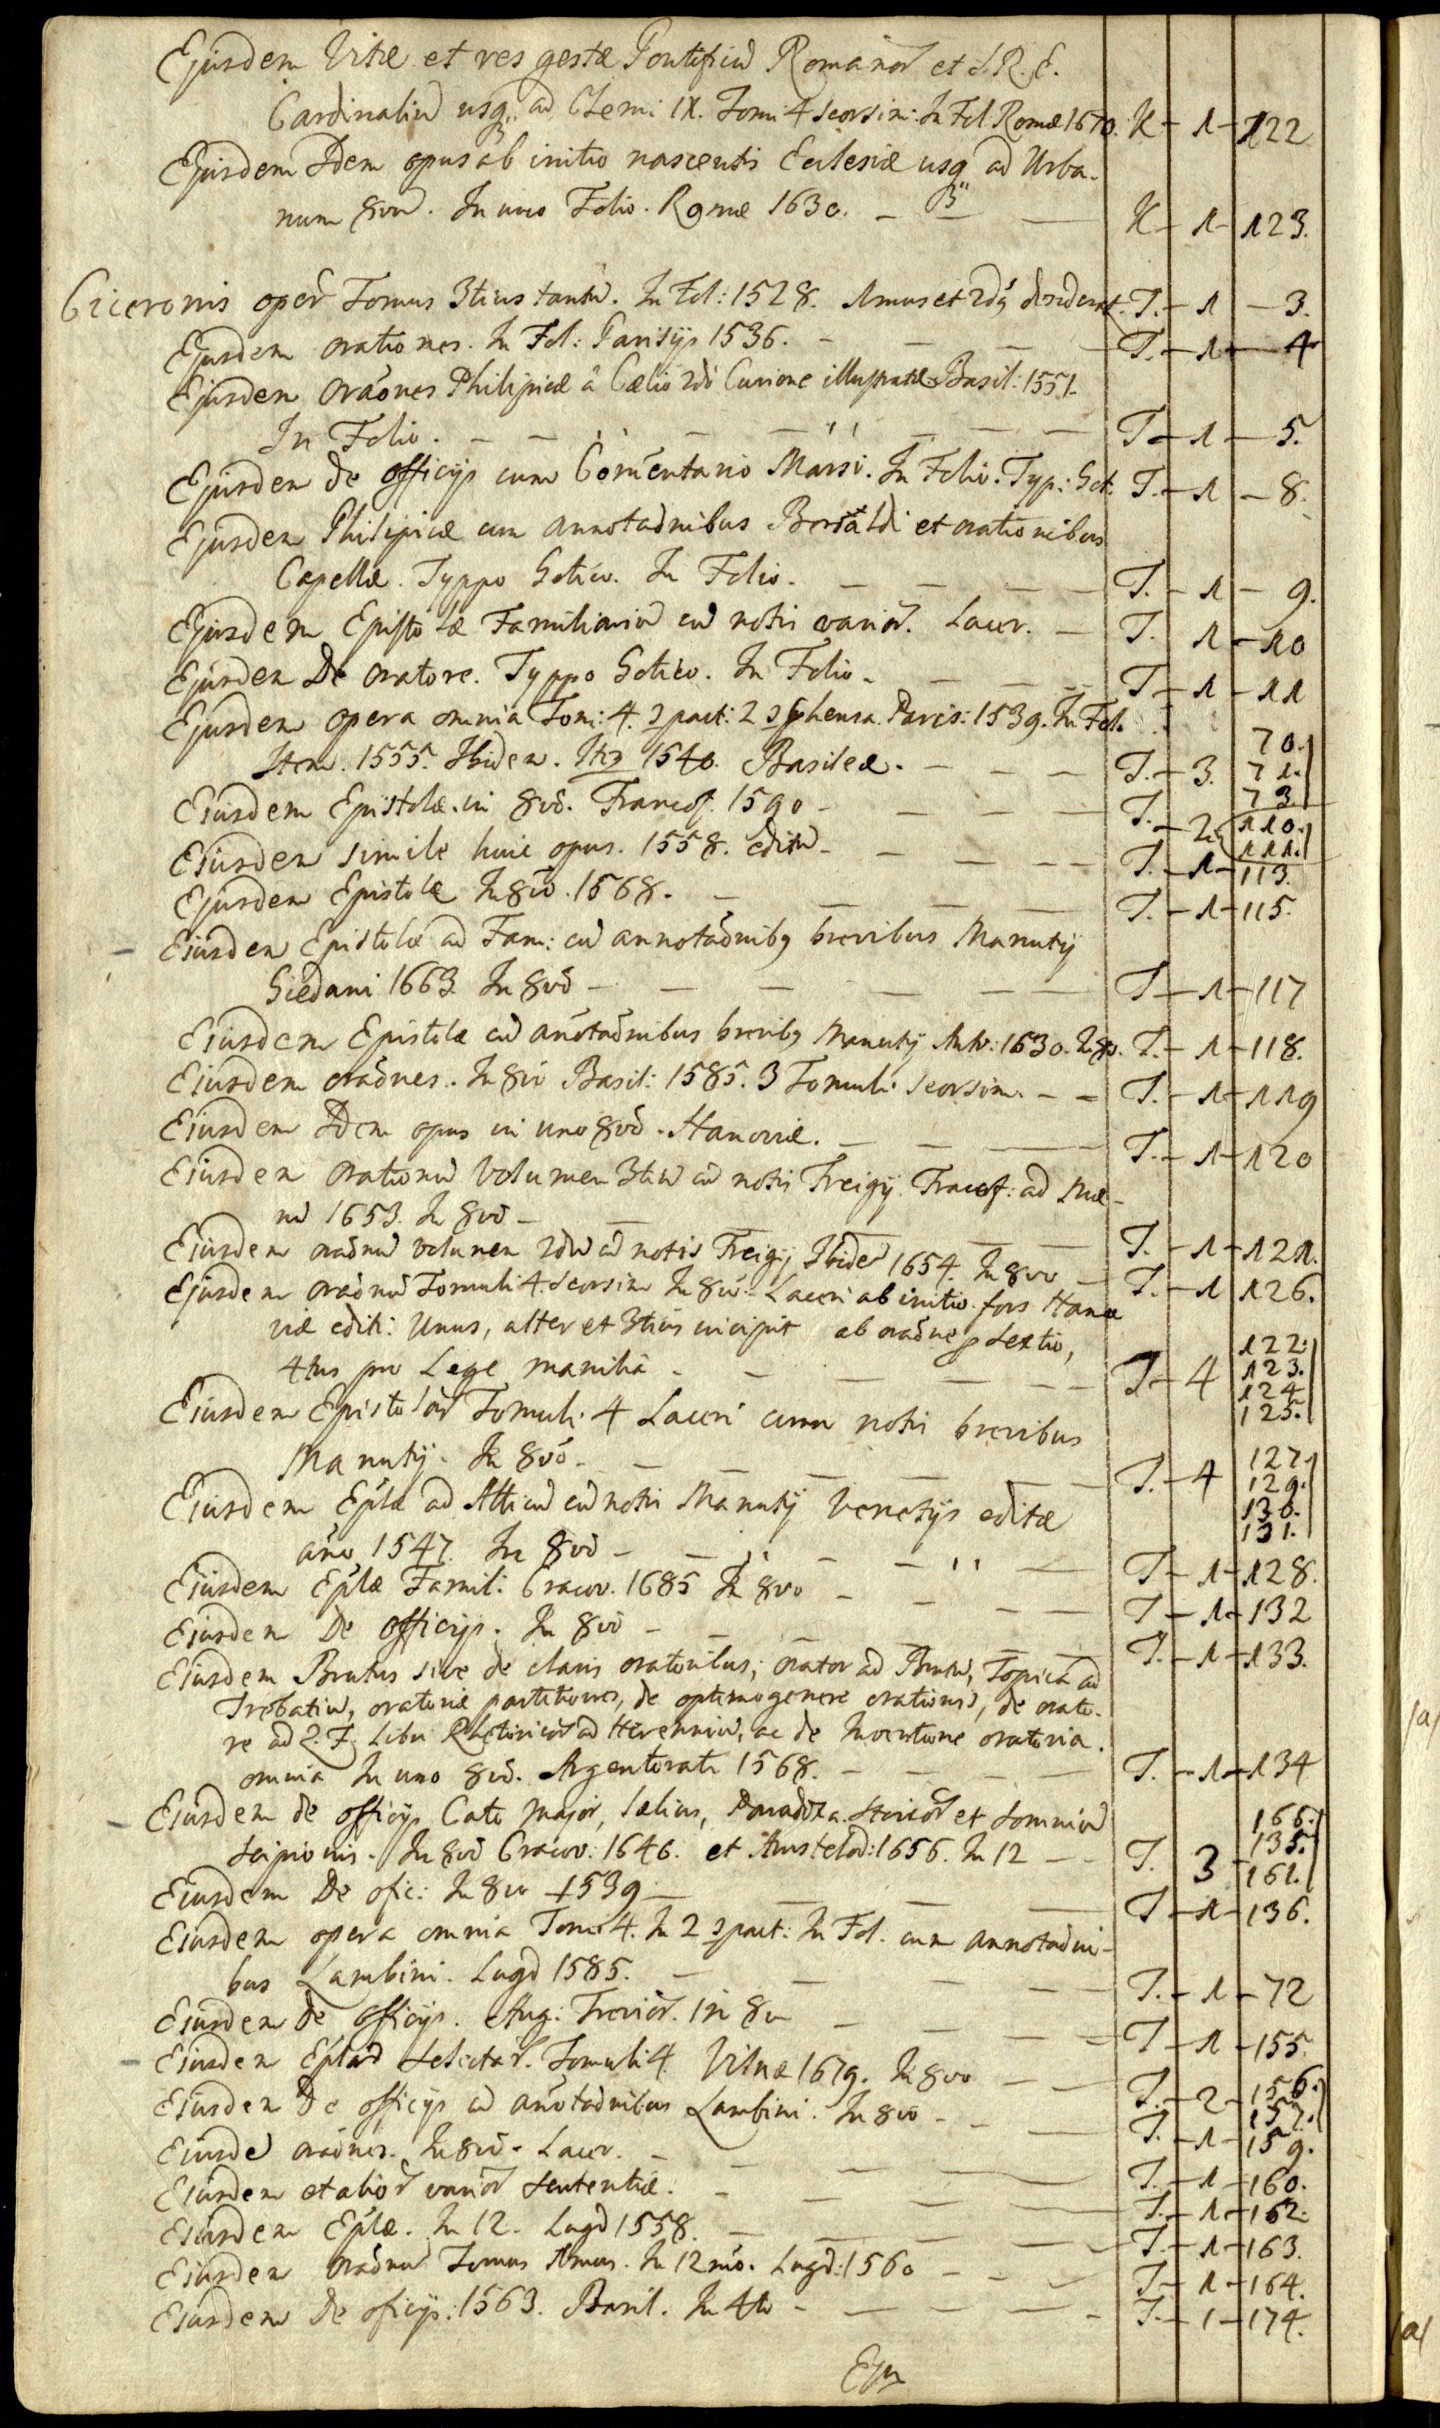 Ejusdem Vitæ et res gestæ Pontificũ Romanor et S.R.E.
Cardinaliũ usq; ad Clemi: IX. Tomi 4 seorsim: In Fol. Romæ 1670. K - 1 - 122
Ejusdem Idem opus ab initio nascentis Ecclesiæ usq ad Urba-
num 8vũ. In uno Folio. Romæ 1630. - K - 1 - 123.
Ciceronis oper Tomus 3tius tantũ. In Fol: 1528. 1mus et 2dq desiderat. T. - 1 - 3.
Ejusdem orationes. In Fol: Parisijs 1536. - T. - 1 - 4
Ejusdem oraões Philipicæ â Cælio 2dô Curione illustratæ Basil: 1551.
In Folio. - T - 1 - 5.
Ejusdem de officijs cum Comentario Marsi. In Folio. Typ: Got. T. - 1 - 8.
Ejusdem Philipicæ cum annotaõnibus Beroaldi et orationibus
Capellæ. Typpo Gotico. In Folio. - T. - 1 - 9.
Ejusdem Epistolæ Familiariũ cũ notis varior. Lacer. - T. 1 - 10
Ejusdem De oratore. Typpo Gotico. In Folio - T - 1 - 11
Ejusdem opera omnia Tomi: 4. compact: 2 Paris: 1539. In Fol.
Item. 1555. Ibidem. Ite 1540. Basileæ. - T. - 3. 70. 71. 73.
Ejusdem Epistolæ in 8vô. Francof. 1590 - T. - 2. 110. 111.
Ejusdem simile huic opus. 1558. editũ - T. - 1 - 113.
Ejusdem Epistolæ In 8vô. 1568. - T. - 1 - 115.
Ejusdem Epistolæ ad Fam: cũ annotaõnibq brevibus Manutij
Giedani 1663. In 8vô - T - 1 - 117
Ejusdem Epistolæ cũ anõtaõnibus brevibq Manutij Antv: 1630. In 8vo. T. - 1 - 118.
Ejusdem oraõnes. In 8vô Basil: 1585. 3 Tomuli seorsim. - T. - 1 - 119
Ejusdem Idem opus in uno 8vô. Hanoviæ. - T. - 1 - 120
Ejusdem orationũ Volumen 3tiũ cũ notis Freigij. Francof: ad Mæ-
nũ 1653. In 8vô - T. - 1 - 121.
Ejusdem oraõnũ volumen 2dũ cũ notis Freigij Ibidẽ 1654. In 8vo - T. - 1 126.
Ejusdem oraõnũ Tomuli 4. seorsim In 8vô. Laceri ab initio fors Hano
viæ editi: Unus, alter et 3tius incipit ab oraõne p Sextio,
4tus pro Lege manilia - T - 4 122. 123. 124 125.
Ejusdem Epistolar Tomuli 4 Laceri cum notis brevibus
Manutij. In 8vô. - T. - 4 127. 129. 130. 131.
Ejusdem Eplæ ad Atticũ cũ notis Manutij Venetijs editæ
año 1547. In 8vô - T - 1 - 128.
Ejusdem Eplæ Famil: Cracov. 1685 In 8vo - T - 1 - 132
Ejusdem De officijs. In 8vô - T. - 1 - 133.
Ejusdem Brutus sive de claris oratoribus; orator ad Brutũ, Topica ad
Trebatiũ, oratoriæ partitiones, de optimo genere orationis, de orato-
re ad Q. F. Libri Rhetoricor ad Herenniũ, ac de Inventione oratoria.
omnia In uno 8vô. Argentorati 1568. - T. - 1 - 134
Ejusdem de officijs Cato Major, Lælius, Paradoxa Stoicor et somniũ
Scipionis. In 8vô Cracov: 1646. et Amstelod: 1656. In 12 - T. 3 166. 135. 161.
Ejusdem De ofic: In 8vo 1539 - T - 1 - 136.
Ejusdem opera omnia Tomi 4. In 2 compact: In Fol. cum annotaõni-
bus Lambini. Lugd 1585. - T. - 1 - 72
Ejusdem De officijs. Aug: Trevior. in 8vo - T - 1 - 155.
Ejusdem Eplar selectar. Tomuli 4. Vilnæ 1679. In 8vo - T. - 2 - 156. 157.
Ejusdem De officijs cũ anõtaõnibus Lambini. In 8vô - T. - 1 - 159.
Ejusdẽ oraõnes. In 8vô. Lacer. - T. - 1 - 160.
Ejusdem et alior varior sententiæ. - T. - 1 - 162.
Ejusdem Eplæ. In 12. Lugd 1558. - T. - 1 - 163.
Ejusdem oraõnũ Tomus 1mus. In 12mô. Lugd: 1560 - T - 1 - 164.
Ejusdem De oficijs: 1563. Basil. In 4to - T. - 1 - 174.
Ejus